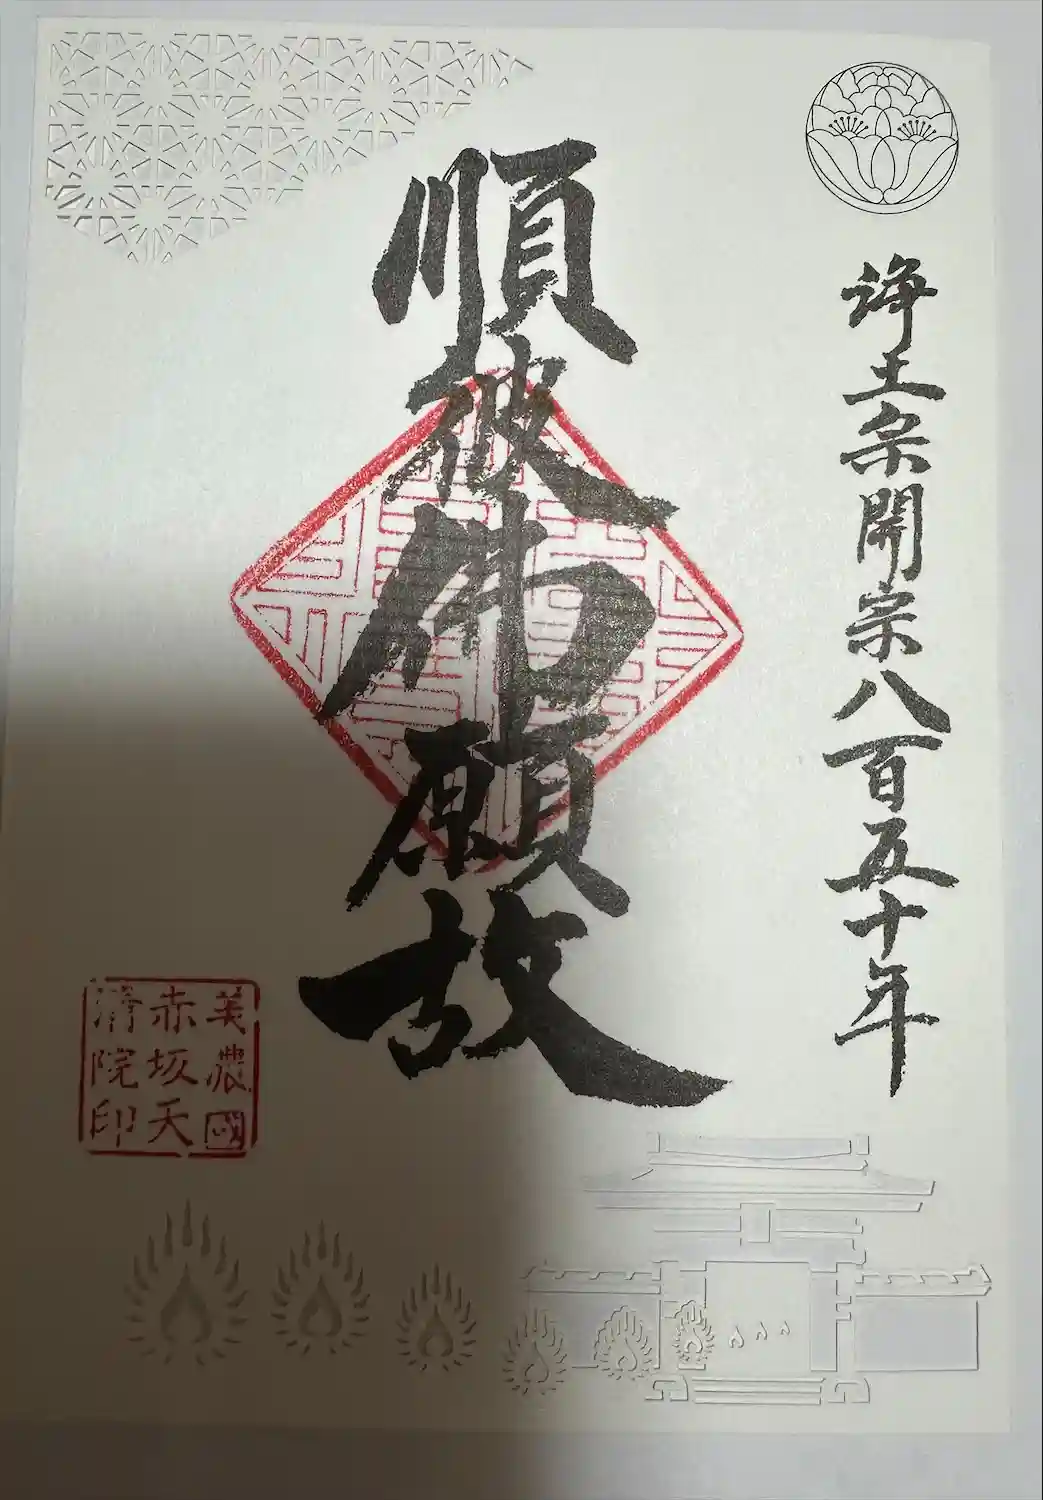 浄土宗開宗八百五十年
順彼佛願故
美農國
赤坂天
清院印